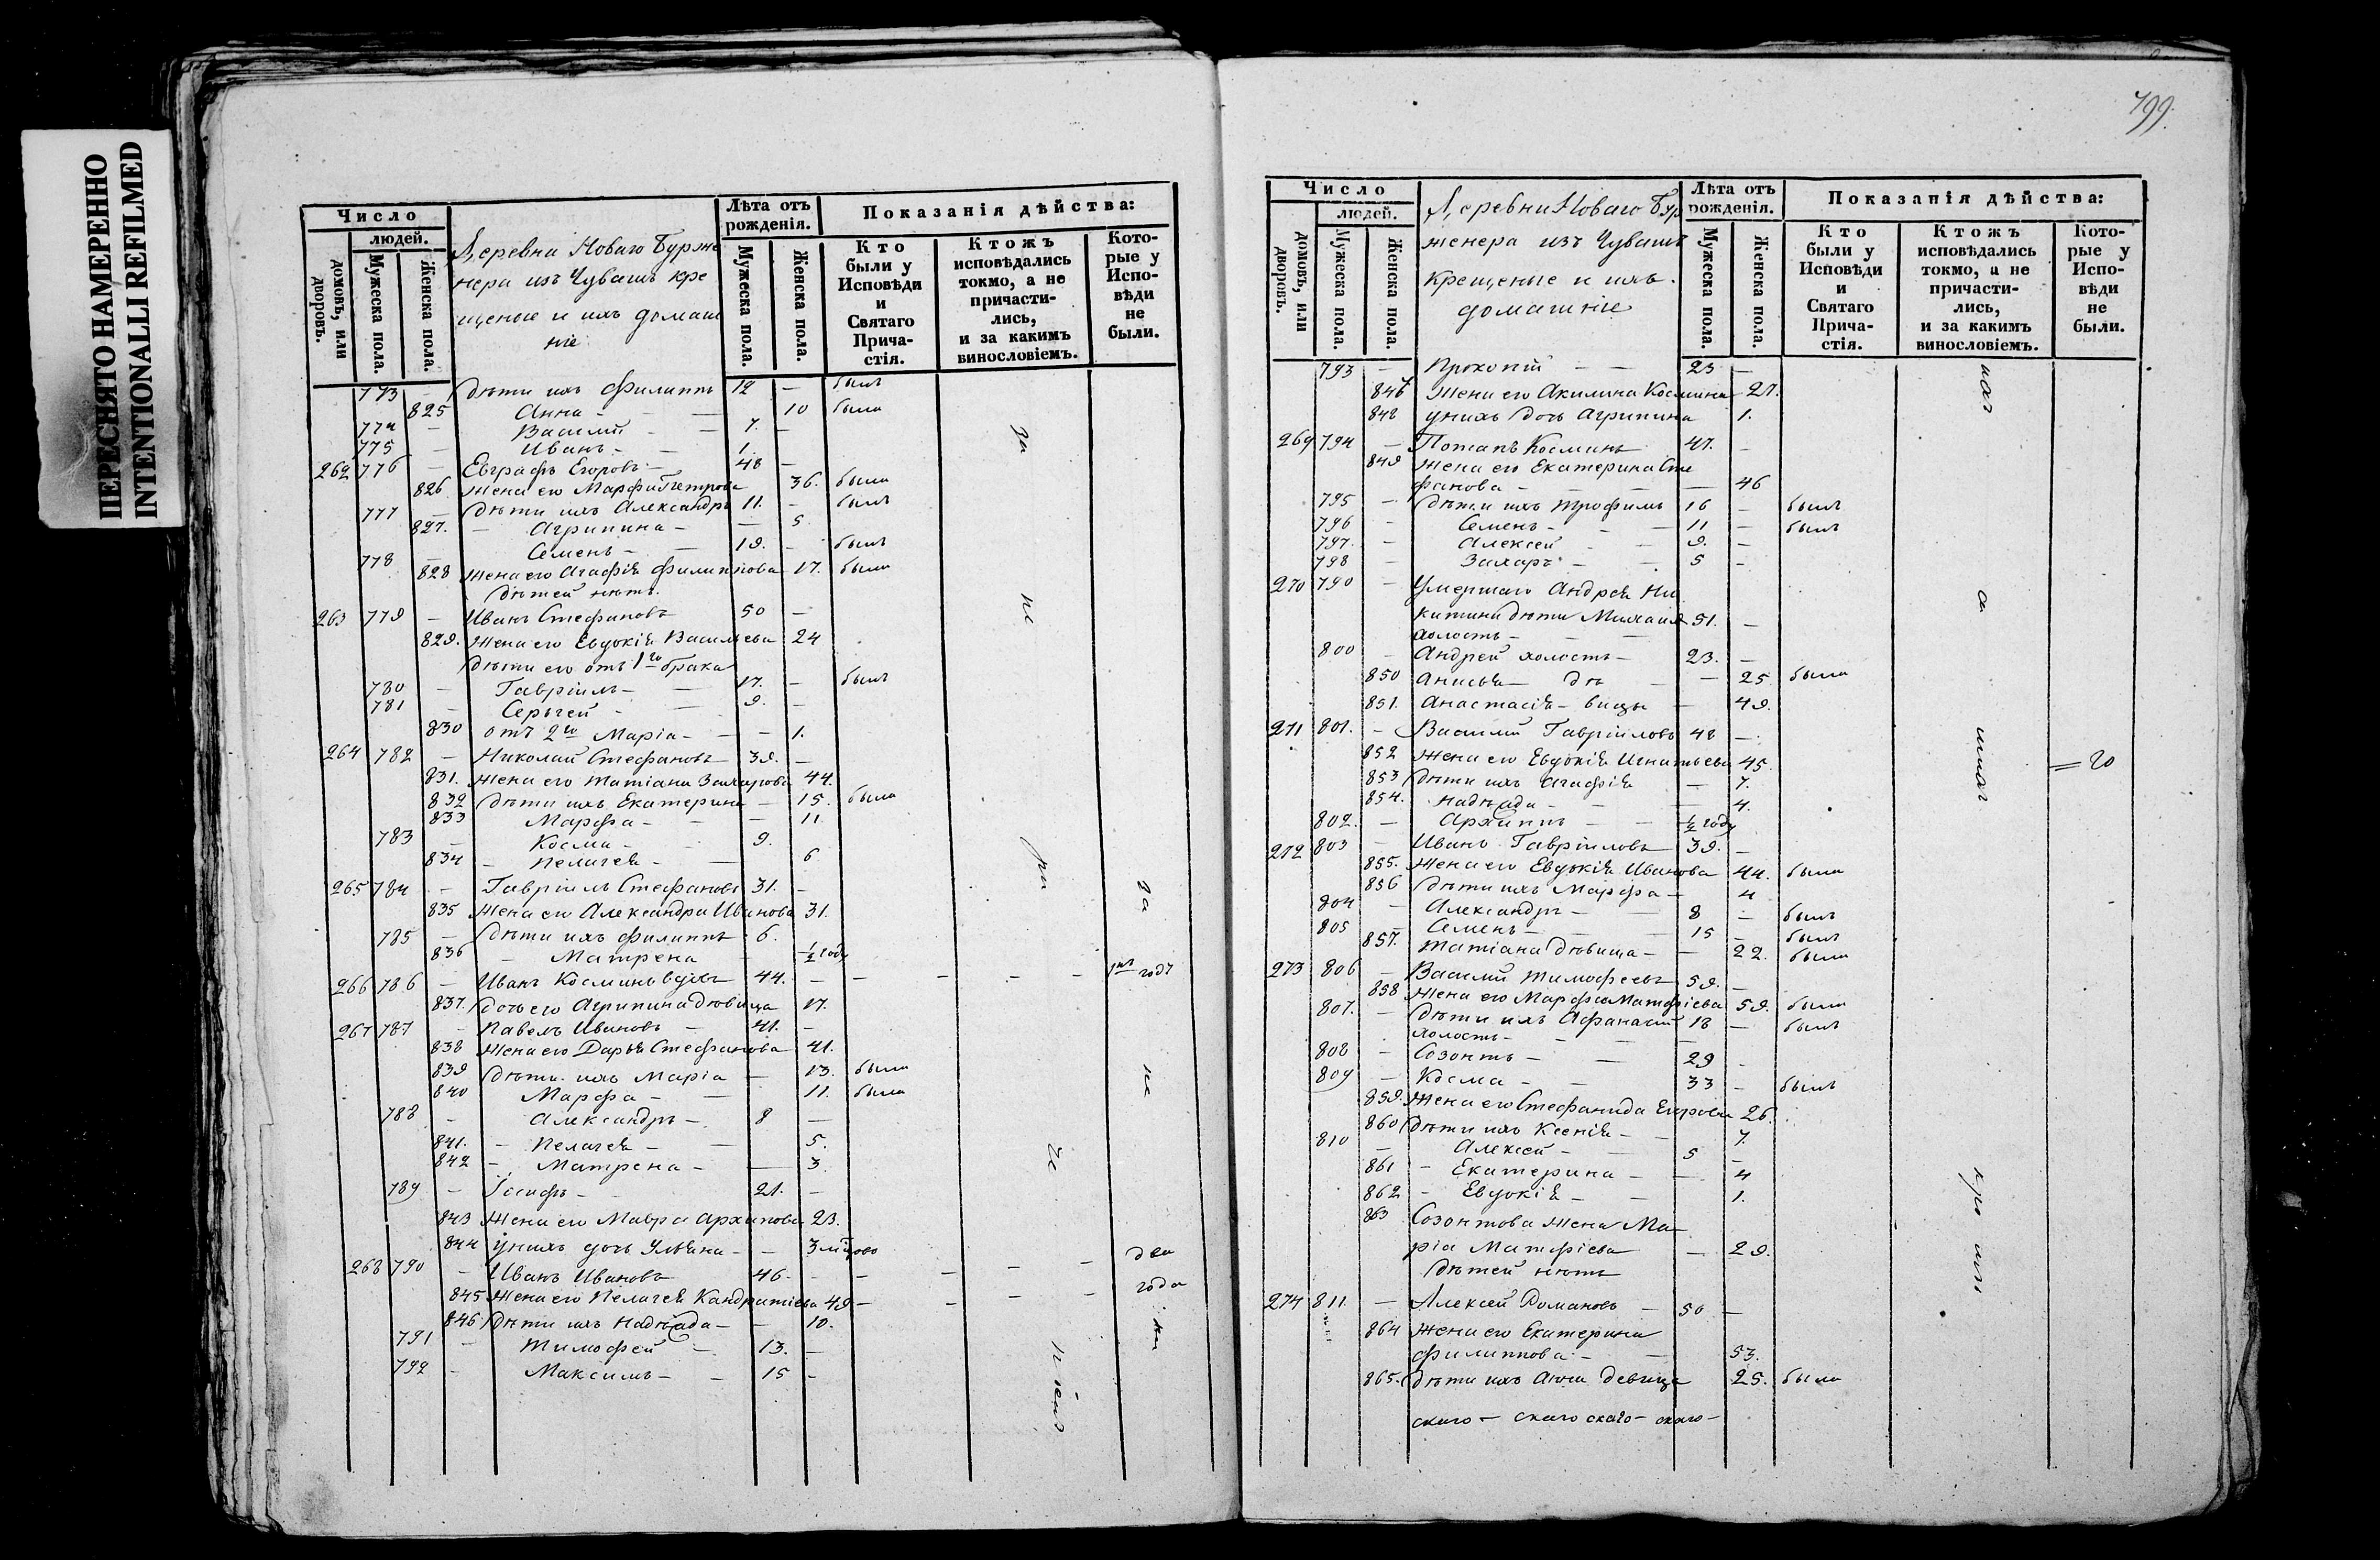 ПЕРЕСНЯТО НАМЕРЕННО
INTENTIONALLI REFILMED
Число
людей.
домовъ, или дворовъ.
Мужеска пола.
Женска пола.
Деревни Новаго Бурже
нера изъ Чувашъ кре
щеные и ихъ домаш
ніе
Лѣта отъ рожденія.
Мужеска пола.
Женска пола.
Показанія дѣйства:
Кто были у Исповѣди и Святаго Прича-стія.
Ктожъ исповѣдались токмо, а не причасти-лись, и за какимъ винословіемъ.
Кото-рые у Испо-вѣди не были.
773 – дѣти ихъ Филиппъ 12 – былъ
825 Анна – – 10 была
774 – Василій – – 7. –
775 – Иванъ – – 1.
262 776 – Евграфъ Егоровъ – 48 –
826 Жена его Марфа Петрова 36. была
777 – дѣти ихъ Александръ 11. – былъ
827. – Агрипина – – 5.
778 – Семенъ – – 19. – былъ
828 Жена его Агафія Филиппова 17. была
дѣтей нѣтъ.
263 779 – Иванъ Стефановъ 50 –
829. Жена его Евдокія Васильева 24
дѣти его отъ 1го брака
780 – Гавріилъ – – 17. – былъ
781 – Сергей – – 9. –
830 отъ 2го Марія – – – 1.
264 782 – Николай Стефановъ 39. –
831. Жена его Татіана Захарова 44.
832 дѣти ихъ Екатерина – 15. была
833 Марфа – – – 11
783 – Косма – 9.
834 – Пелагея – – 6
265 784 – Гавріилъ Стефановъ 31. –
835 Жена его Александра Иванова 31.
785 – дѣти ихъ Филиппъ 6.
836 – Матрена – ½ году
266 786 – Иванъ Косминъ вдовъ 44. – – – – – 1нъ годъ
837. дочь его Агрипина дѣвица 17.
267 787 – Павелъ Ивановъ – 41. –
838 Жена его Дарья Стефанова 41.
839 дѣти ихъ Марія – 13. была
840 Марфа – – 11. была
788 – Александръ – 8 –
841. – Пелагея – – 5.
842 – Матрена – – 3
789 – Іосифъ – 21. –
843 Жена его Мавра Архипова 23.
844 у нихъ дочь Ульяна – –
268 790 – Иванъ Ивановъ 46. – – – – – два
845 Жена его Пелагея Кандратіева 49 – – – – года
846 дѣти ихъ Надежда – – 10.
791 – Тимофей – 13. –
792 – Максимъ – – 15 –
за
не
при
за
не
799.
Число
людей.
домовъ, или дворовъ.
Мужеска пола.
Женска пола.
Деревни Новаго Бур
женера изъ Чувашъ
крещеные и ихъ
домашніе
Лѣта отъ рожденія.
Мужеска пола.
Женска пола.
Показанія дѣйства:
Кто были у Исповѣди и Святаго Прича-стія.
Ктожъ исповѣдались токмо, а не причасти-лись, и за какимъ винословіемъ.
Кото-рые у Испо-вѣди не были.
793 – Прокопій – – 23 –
847 Жена его Акилина Космина 21.
848 у нихъ дочь Агрипина 1.
269 794 – Потапъ Косминъ 47. –
849 Жена его Екатерина Сте
фанова – – – 46
795 – дѣти ихъ Трофимъ 16 – былъ
796 – Семенъ – – 11 – былъ
797. – Алексей – 9. –
798 – Захаръ – – 5 –
270 790 – Умершаго Андрея Ни
китина дѣти Михаилъ 51. –
холостъ – –
800 – Андрей холостъ – 23. –
850 Анисья – дѣ – – 25 была
851. Анастасія – вицы – 49.
271 801. – Василій Гавріиловъ 48 –
852 Жена его Евдокія Игнатьева 45. = 20
853 дѣти ихъ Агафія – 7.
854. Надежда – – – 4.
802. – Архиппъ – – ½ году
272 803 – Иванъ Гавріиловъ 39. –
855. Жена его Евдокія Иванова 44. была
856 дѣти ихъ Марфа – 4
804 – Александръ – – 8 – былъ
805 – Семенъ – – 15 – былъ
857. Татіана дѣвица – – 22. была
273 806 – Василій Тимофеевъ 59. –
858 Жена его Марфа Матфіева 59. была
807. – дѣти ихъ Афанасій 18 – былъ
холостъ – – –
808 – Созонтъ – – 29 –
809 – Косма – – 33 – былъ
859. Жена его Стефанида Егорова 26.
860 дѣти ихъ Ксенія – – 7.
810 – Алексей – 5 –
861 – Екатерина – – 4
862 – Евдокія – – 1.
863 Созонтова жена Ма
рія Матфіева – 29.
дѣтей нѣтъ
274 811. – Алексей Романовъ – 50 –
864 Жена его Екатерина
Филиппова – – 53.
865. дѣти ихъ Анна девица 25. была
скаго – скаго скаго – скаго –